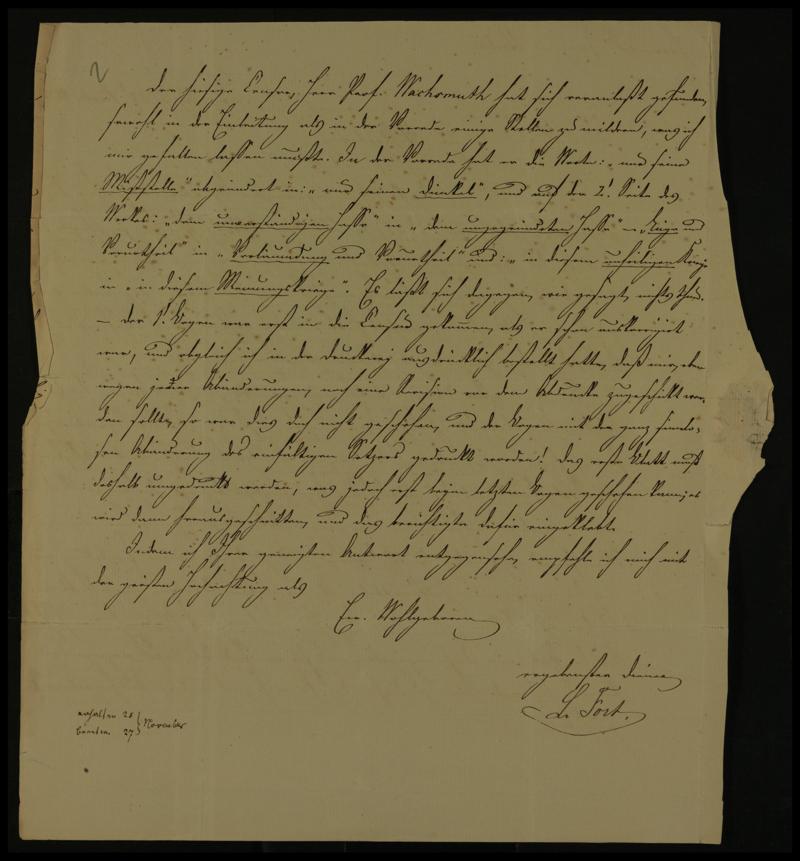 2
Der hiesige Censor, Herr Prof. Wachsmuth hat sich veranlaßt gefunden,
sowohl in der Einleitung als in der Vorrede einige Stellen zu mildern, was ich
mir gefallen lassen mußte. In der Vorrede hat er die Worte: „und seine
abgeändert in: „und seinen Dünkel“, und auf der 2t. Seite des
Werkes: „dem unverständigen Hasse“ in „dem ungegründeten Hasse“ – und
Vorurtheil“ in „Verläumdung und Vorurtheil“ und: „in diesem unheiligen Kriege
in „in diesem Meinungskriege“. Es läßt sich dagegen, wie gesagt, nichts thun.
– der 1t. Bogen war erst in die Censur gekommen, als er schon auskorrigirt
war, und obgleich ich in der Druckerei ausdrücklich bestellt hatte, daß mir, eben
wegen jener Abänderungen, noch eine Revision vor dem Abdrucke zugeschickt wer-
den sollte, so war dies doch nicht geschehen, und der Bogen mit der ganz sinnlo-
sen Abänderung des einfältigen Setzers gedruckt worden! Das erste Blatt muß
deshalb umgedruckt werden, was jedoch erst beym letzten Bogen geschehen kann; es
wird dann herausgeschnitten, und das berichtigte dafür eingeklebt.
Indem ich Ihrer geneigten Antwort entgegensehe, empfehle ich mich mit
der größten Hochachtung als
Ew. Wohlgeboren
ergebenster Diener
L. Fort.
erhalten 26
27 November